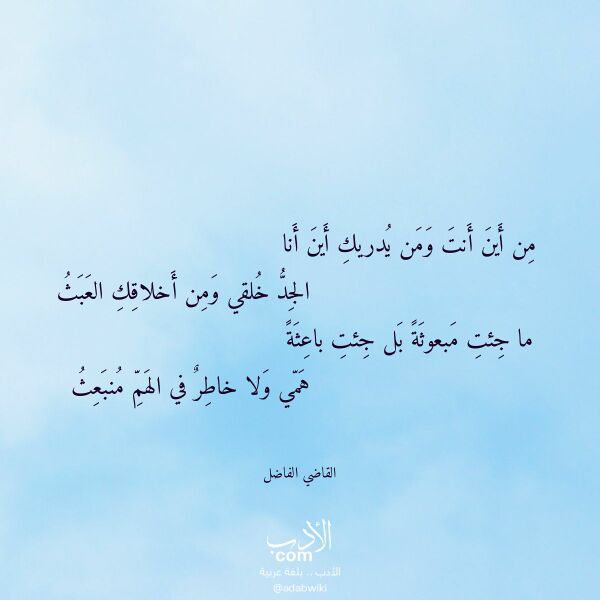 مِن أَينَ أَنتَ وَمَن يُدريكِ أَينَ أَنا
الجِدُّ خُلقي وَمِن أَخلاقِكِ العَبَثُ
ما جِئتِ مَبعوثَةً بَل جِئتِ باعِثَةً
هَمّي وَلا خاطِرٌ في الهَمِّ مُنبَعِثُ
القاضي الفاضل
الأدب
com
الأدب .. بلغة عربية
@adabwiki